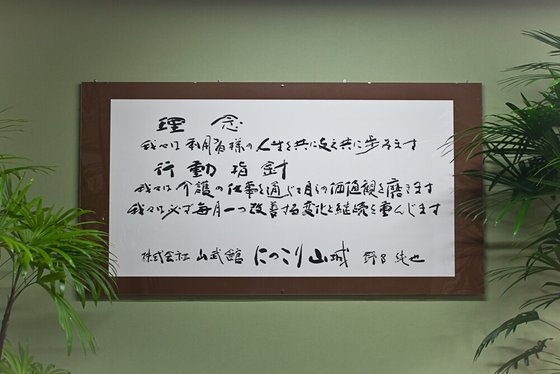 理念
我々は利用者様の人生を共に支え共に歩みます
行動指針
我々は介護の仕事を通じて自らの価値観を磨きます
我々は必ず毎月一つ改善する変化と継続を重んじます
株式会社 山武館 にっこり山城 野呂 純也